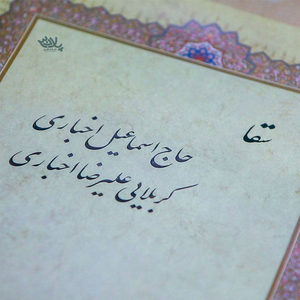 سقا
حاج اسماعیل اخباری
کربلایی علیرضا اخباری